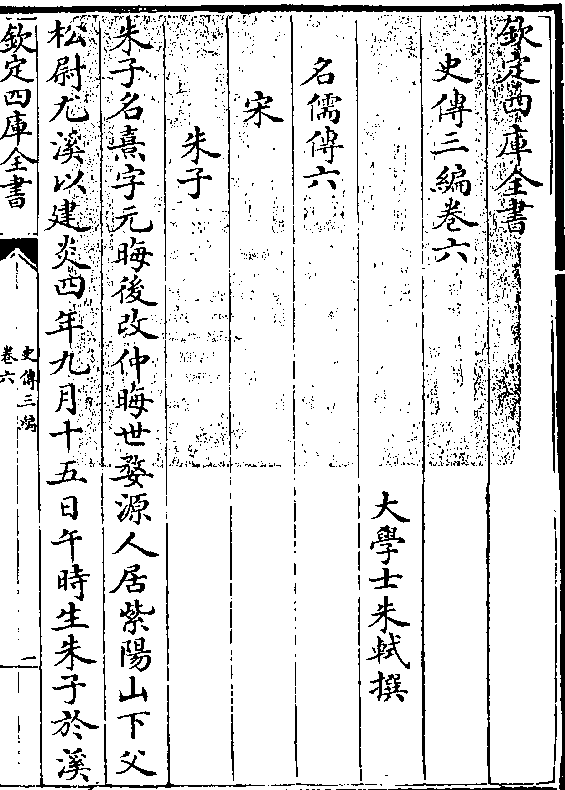 欽定四庫全書
史傳三編卷六
大學士朱軾撰
名儒傳六
宋
朱子
朱子名熹字元晦後改仲晦世婺源人居紫陽山下父
松尉尤溪以建炎四年九月十五日午時生朱子於溪
欽定四庫全書
史傳三編
卷六
一